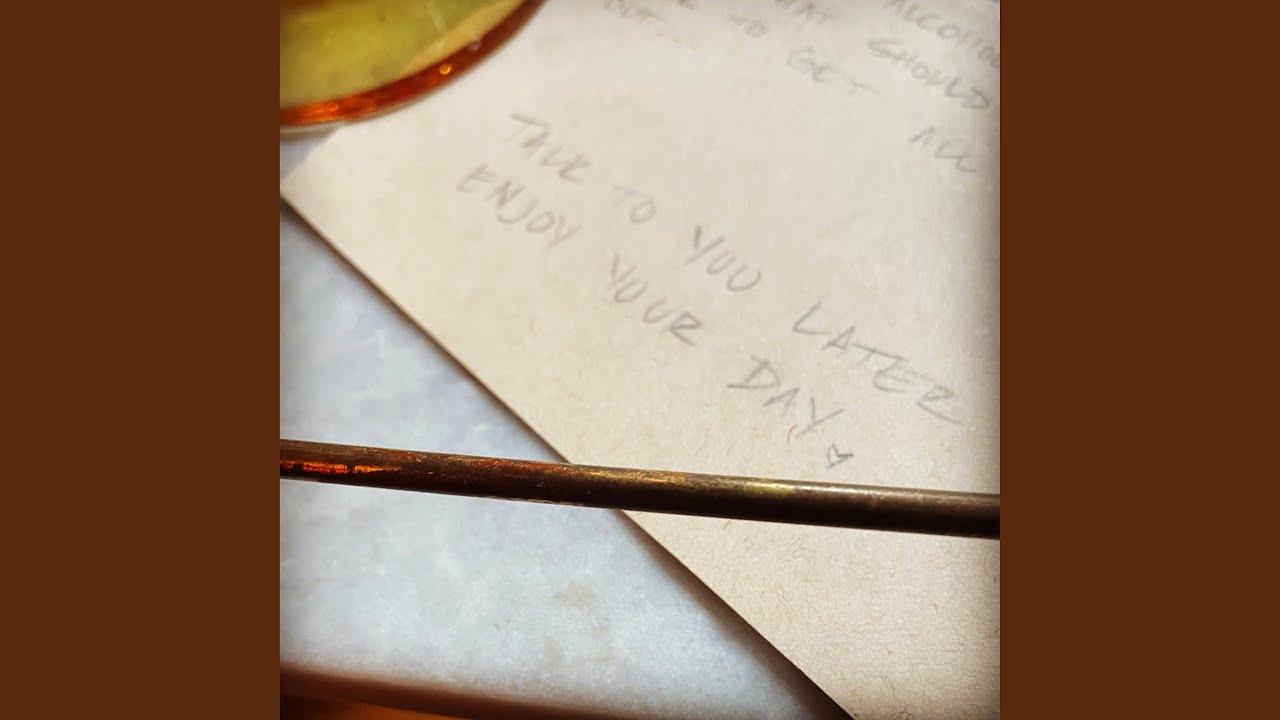 ALCOHOL
WHAT SHOULD
TO GET ALL
TALK TO YOU LATER
ENJOY YOUR DAY